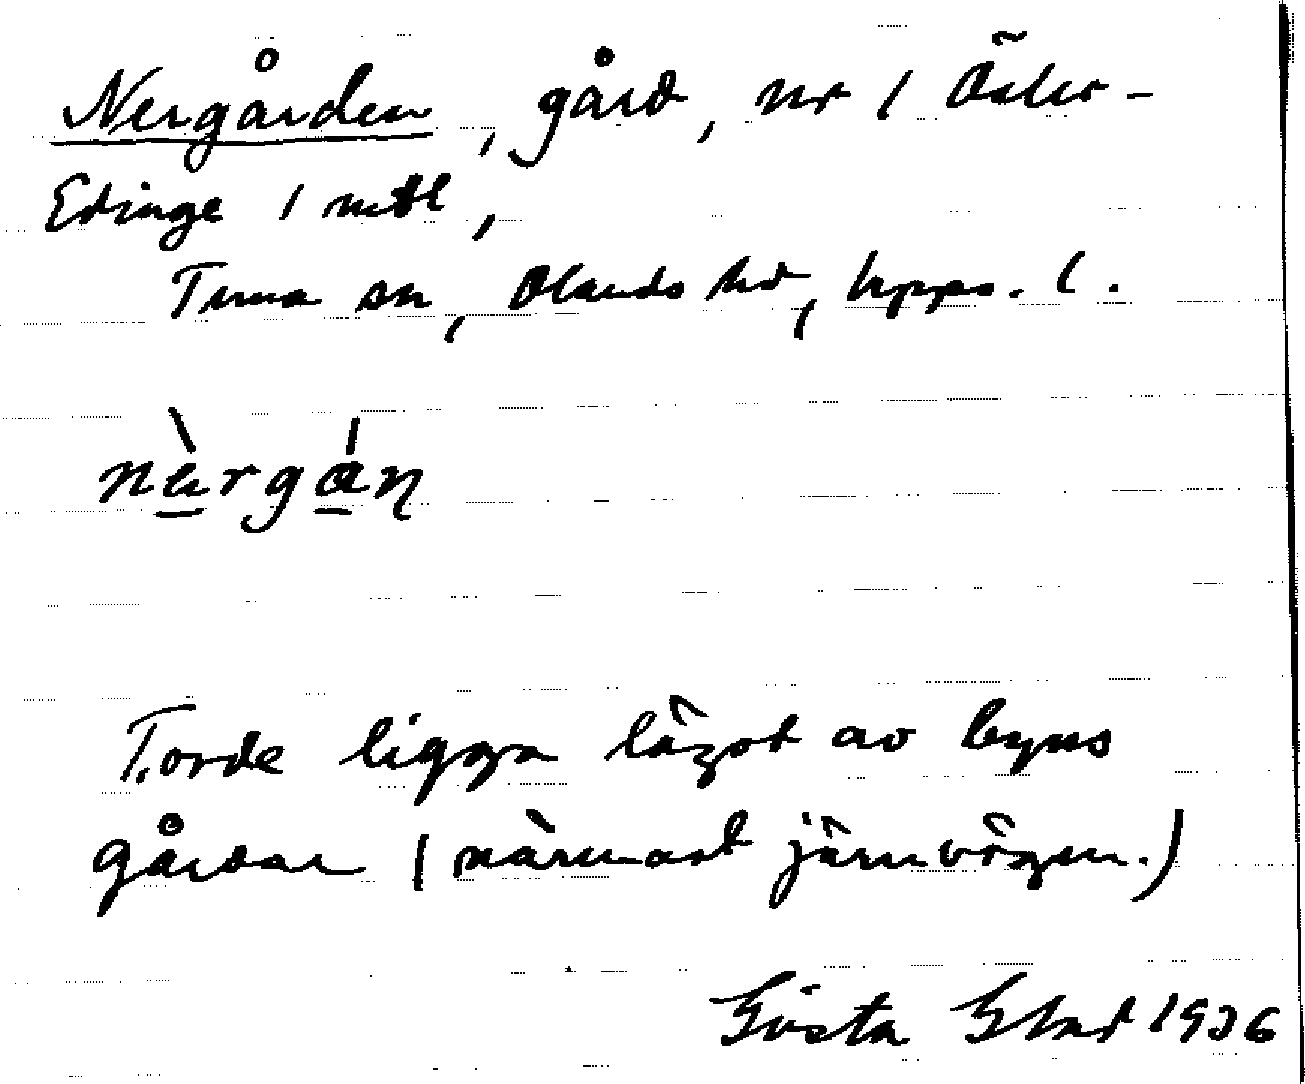 Nergården, gård, nr 1 Öster-
Edinge 1 mtl,
Tuna sn, Olands hd, Upps. l.
nàrgán
Torde ligga lägst av byns
gårdar (närmast järnvägen.)
Gösta Blad 1936